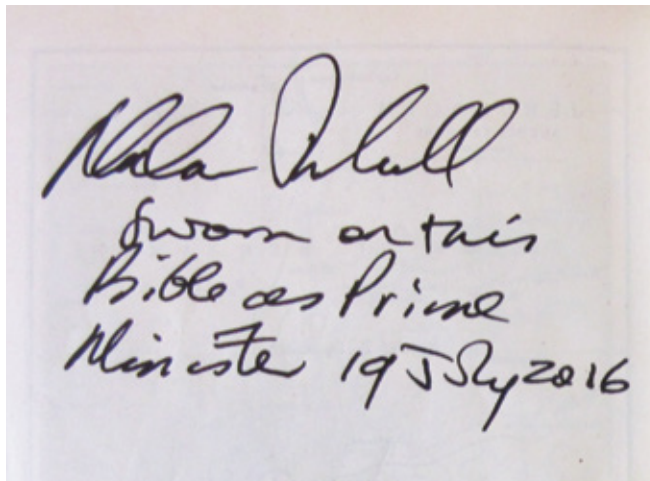 Malcolm Turnbull
Sworn on this
Bible as Prime
Minister 19 July 2016